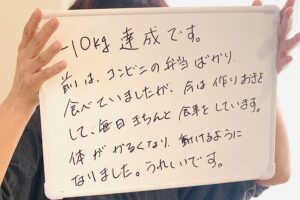 -10kg 達成です。
前は、コンビニの弁当ばかり
食べていましたが、今は作りおきを
して、毎日きちんと食事をしています。
体がかるくなり、動けるように
なりました。うれしいです。